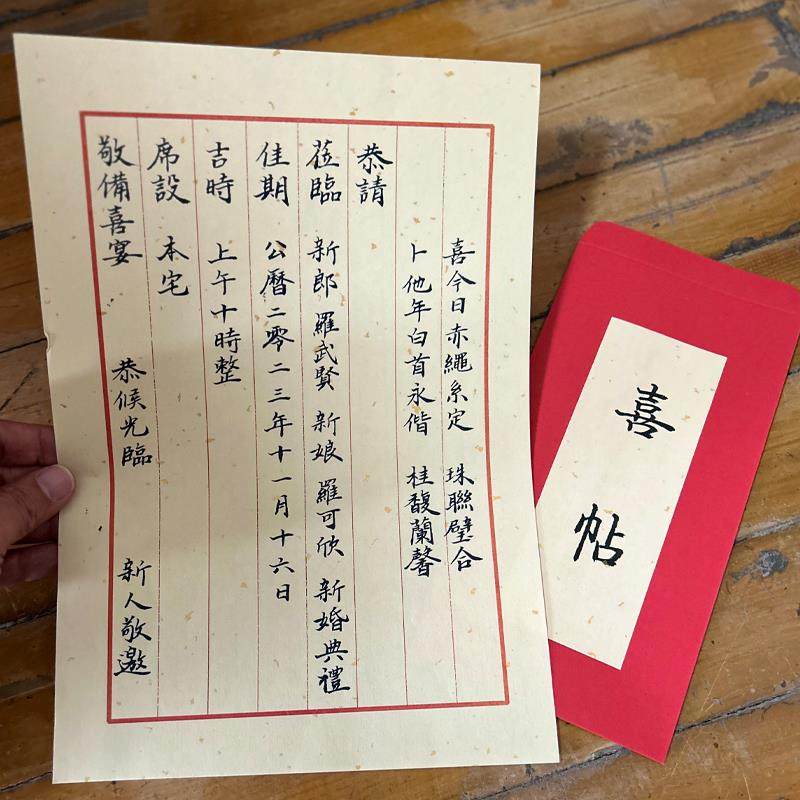 喜今日赤繩系定 珠聯璧合
卜他年白首永偕 桂馥蘭馨
恭請
莅臨 新郎 羅武賢 新娘 羅可欣 新婚典禮
佳期 公曆二零二三年十一月十六日
吉時 上午十時整
席設 本宅
敬備喜宴 恭候光臨 新人敬邀
喜帖